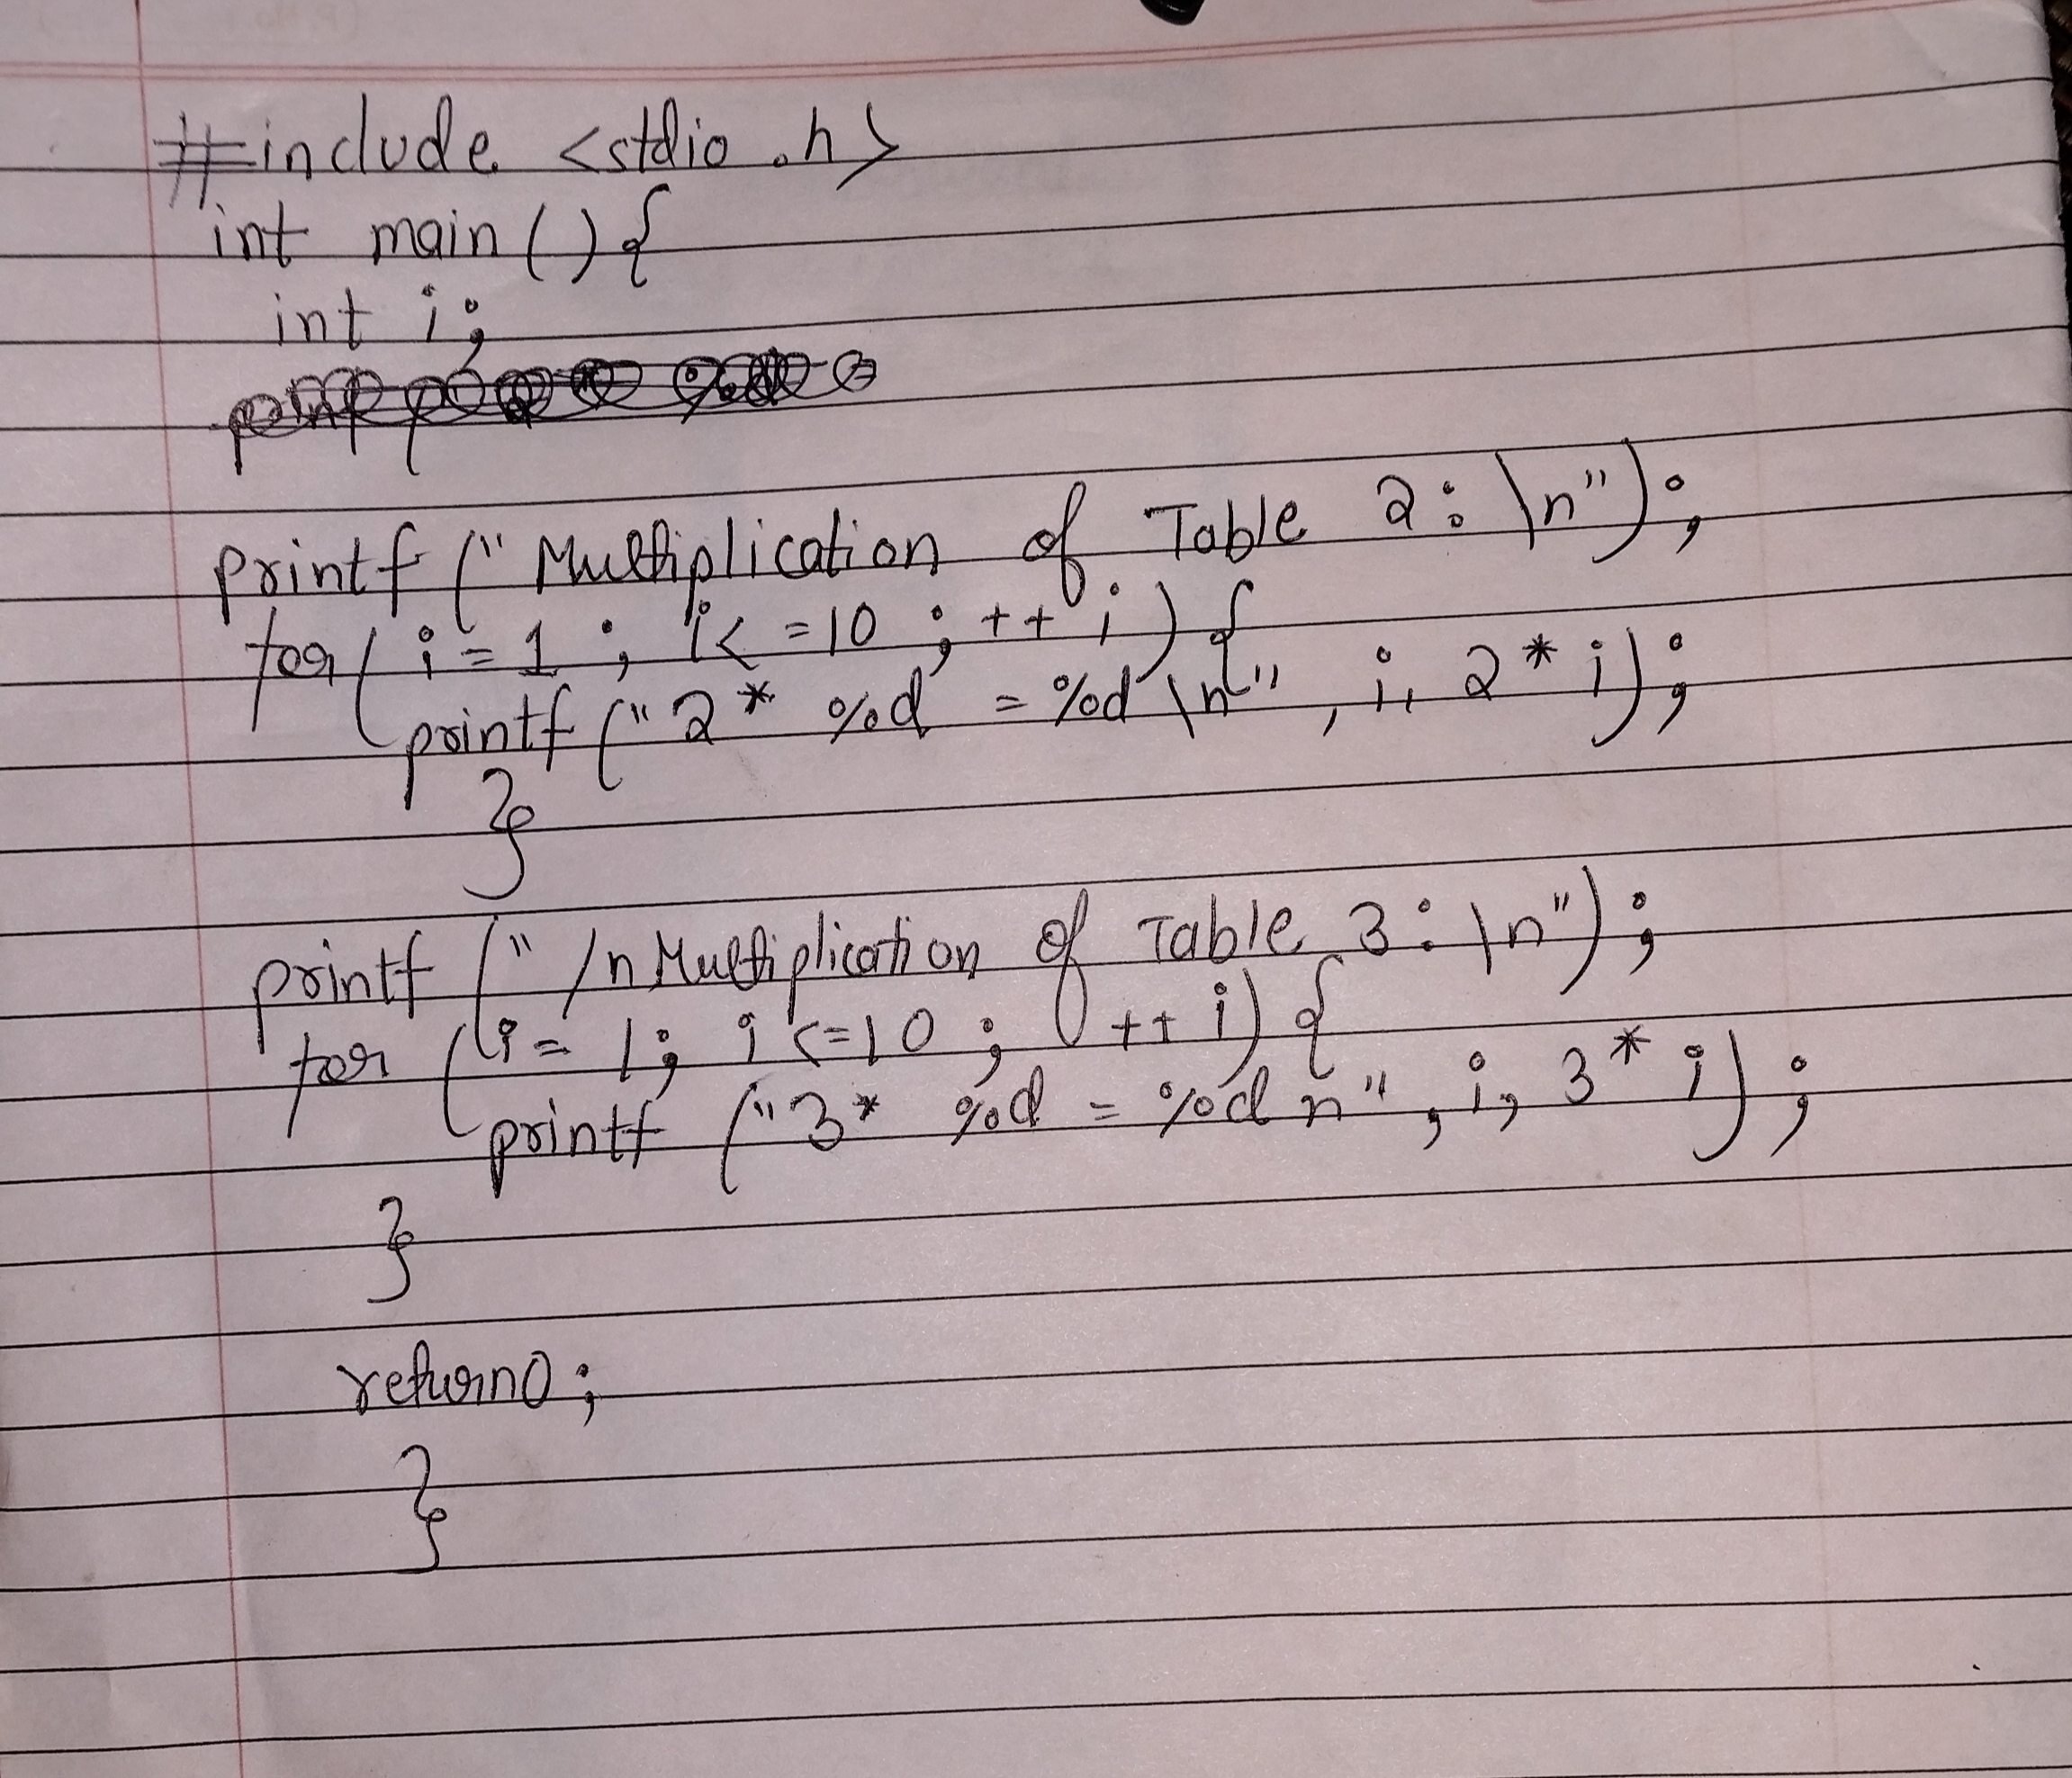 #include <stdio.h>
int main () {
int i;
printf ("Multiplication of Table 2: \n");
for ( i = 1 ; i< =10 ; ++ i ) {
printf ("2 * %d = %d \n" , i, 2 * i);
}
printf (" /n Multiplication of Table 3: \n");
for (i = 1; i <=10 ; ++ i) {
printf ("3 * %d = %d n" , i, 3 * i) ;
}
return0;
}